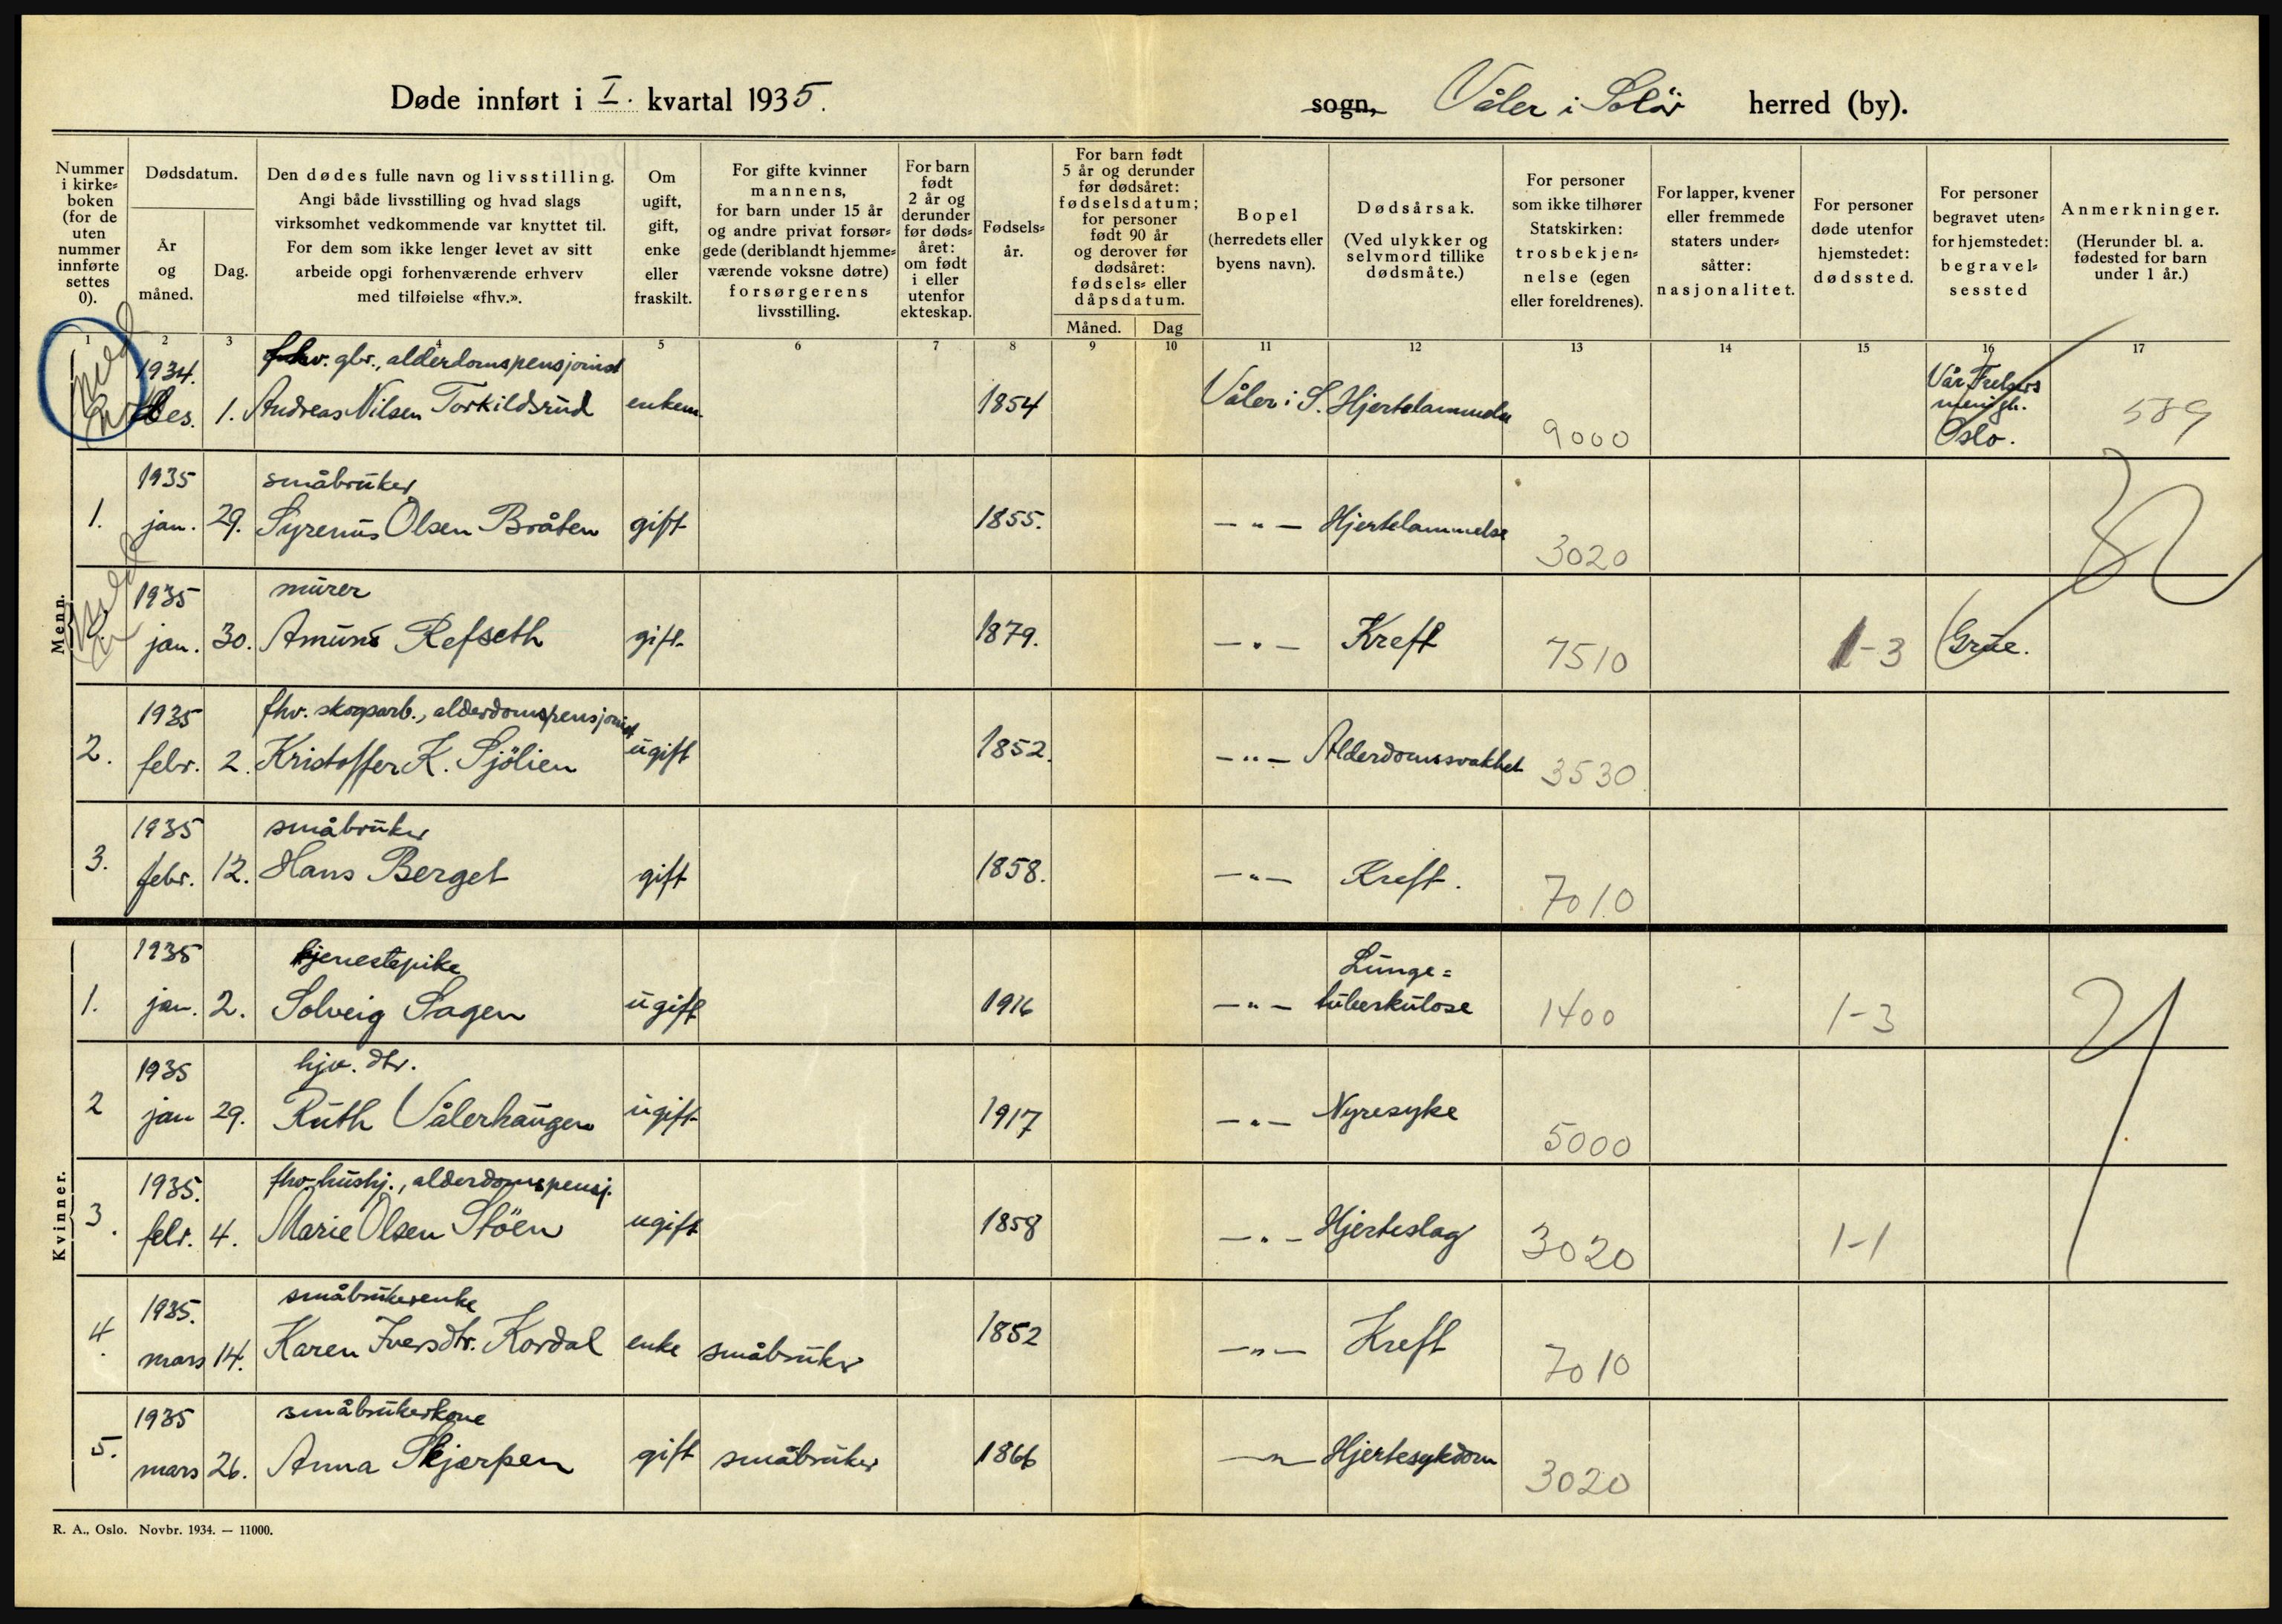 Døde innført i I. kvartal 1935. sogn, Våler i Solør herred (by).
Nummer i kirke=boken (for de uten nummer innførte settes 0).
Dødsdatum.
År og måned.
Dag.
Den dødes fulle navn og livsstilling. Angi både livsstilling og hvad slags virksomhet vedkommende var knyttet til. For dem som ikke lenger levet av sitt arbeide opgi forhenværende erhverv med tilføielse «fhv.».
Om ugift, gift, enke eller fraskilt.
For gifte kvinner mannens, for barn under 15 år og andre privat forsør=gede (deriblandt hjemme=værende voksne døtre) forsørgerens livsstilling.
For barn født 2 år og derunder før døds=året: om født i eller utenfor ekteskap.
Fødsels=år.
For barn født 5 år og derunder før dødsåret: fødselsdatum; for personer født 90 år og derover før dødsåret: fødsels= eller dåpsdatum.
Måned. Dag
Bopel (herredets eller byens navn).
Dødsårsak. (Ved ulykker og selvmord tillike dødsmåte.)
For personer som ikke tilhører Statskirken: trosbekjen=nelse (egen eller foreldrenes).
For lapper, kvener eller fremmede staters under=såtter: nasjonalitet.
For personer døde utenfor hjemstedet: dødssted.
For personer begravet uten=for hjemstedet: begravel=sessted
Anmerkninger. (Herunder bl. a. fødested for barn under 1 år.)
1 2 3 4 5 6 7 8 9 10 11 12 13 14 15 16 17
Menn.
1934. fhv. gbr., alderdomspensjonist Vår Frelsers
des. 1. Andreas Nilsen Torkildsrud enkem. 1854 Våler i S. Hjertelammelse 9000 menigh. Oslo. 589
1935 småbruker
1. jan. 29. Syrenus Olsen Bråten gift 1855. — " — Hjertelammelse 3020
1935 murer
jan. 30. Amund Refseth gift 1879. — " — Kreft 7510 1-3 Grue.
1935 fhv. skogsarb., alderdomspensjonist
2. febr. 2. Kristoffer K. Sjölien ugift 1852. — " — Alderdomssvakhet 3530
1935 småbruker
3. febr. 12. Hans Berget gift 1858. — " — Kreft. 7010
Kvinner.
1935 tjenestepike Lunge=
1. jan. 2. Solveig Sagen ugift 1916 — " — tuberkulose 1400 1-3
1935 hjv. dtr.
2 jan 29. Ruth Vålerhaugen ugift 1917 — " — Nyresyke 5000
1935. fhv. hushj., alderdomspensj.
3. febr. 4. Marie Olsen Stöen ugift 1858 — " — Hjerteslag 3020 1-1
1935. småbrukerenke
4. mars 14. Karen Iversdtr. Kordal enke småbruker 1852 — " — Kreft 7010
1935 småbrukerkone
5. mars 26. Anna Skjærpen gift småbruker 1866 — " — Hjertesykdom 3020
R. A., Oslo. Novbr. 1934. — 11000.